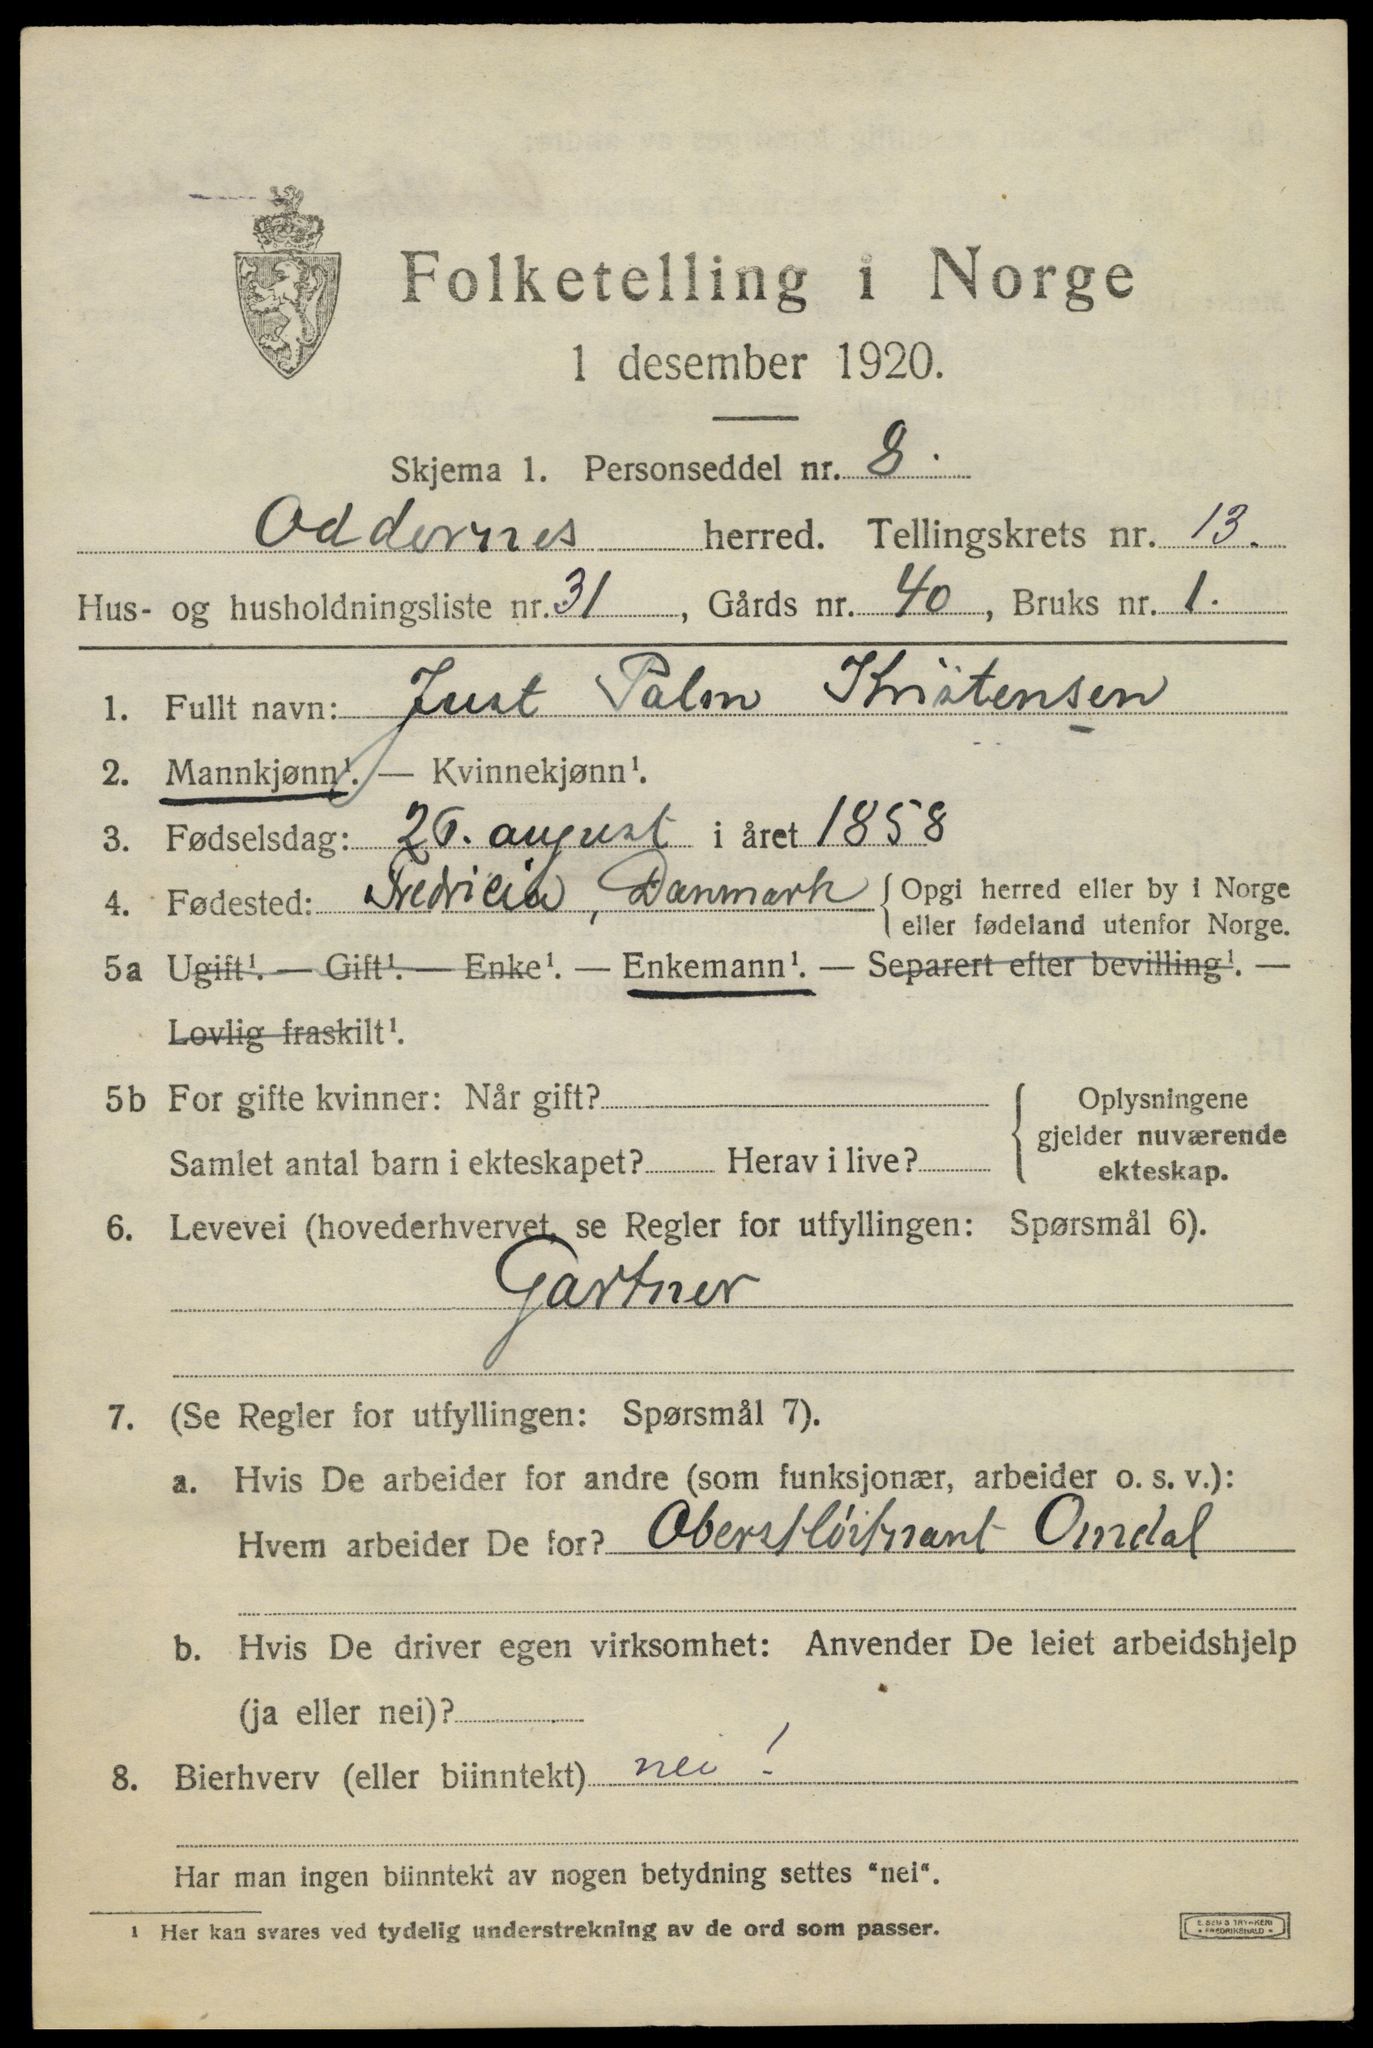 Folketelling i Norge
1 desember 1920.
Skjema 1. Personseddel nr. 8.
Oddernes herred. Tellingskrets nr. 13.
Hus- og husholdningsliste nr. 31, Gårds nr. 40, Bruks nr. 1.
1. Fullt navn: Just Palm Kristensen
2. Mannkjønn¹. — Kvinnekjønn¹.
3. Fødselsdag: 26. august i året 1858
4. Fødested: Fredricia, Danmark { Opgi herred eller by i Norge
eller fødeland utenfor Norge.
5a Ugift¹. — Gift¹. — Enke¹. — Enkemann¹. — Separert efter bevilling¹. —
Lovlig fraskilt¹.
5b For gifte kvinner: Når gift?
Samlet antal barn i ekteskapet? Herav i live?
Oplysningene
gjelder nuværende
ekteskap.
6. Levevei (hovederhvervet, se Regler for utfyllingen: Spørsmål 6).
Gartner
7. (Se Regler for utfyllingen: Spørsmål 7).
a. Hvis De arbeider for andre (som funksjonær, arbeider o. s. v.):
Hvem arbeider De for? Oberstløitnant Omdal
b. Hvis De driver egen virksomhet: Anvender De leiet arbeidshjelp
(ja eller nei)?
8. Bierhverv (eller biinntekt) nei!
Har man ingen biinntekt av nogen betydning settes "nei".
¹ Her kan svares ved tydelig understrekning av de ord som passer.
E. SEMS TRYKKERI
• FREDRIKSHALD •